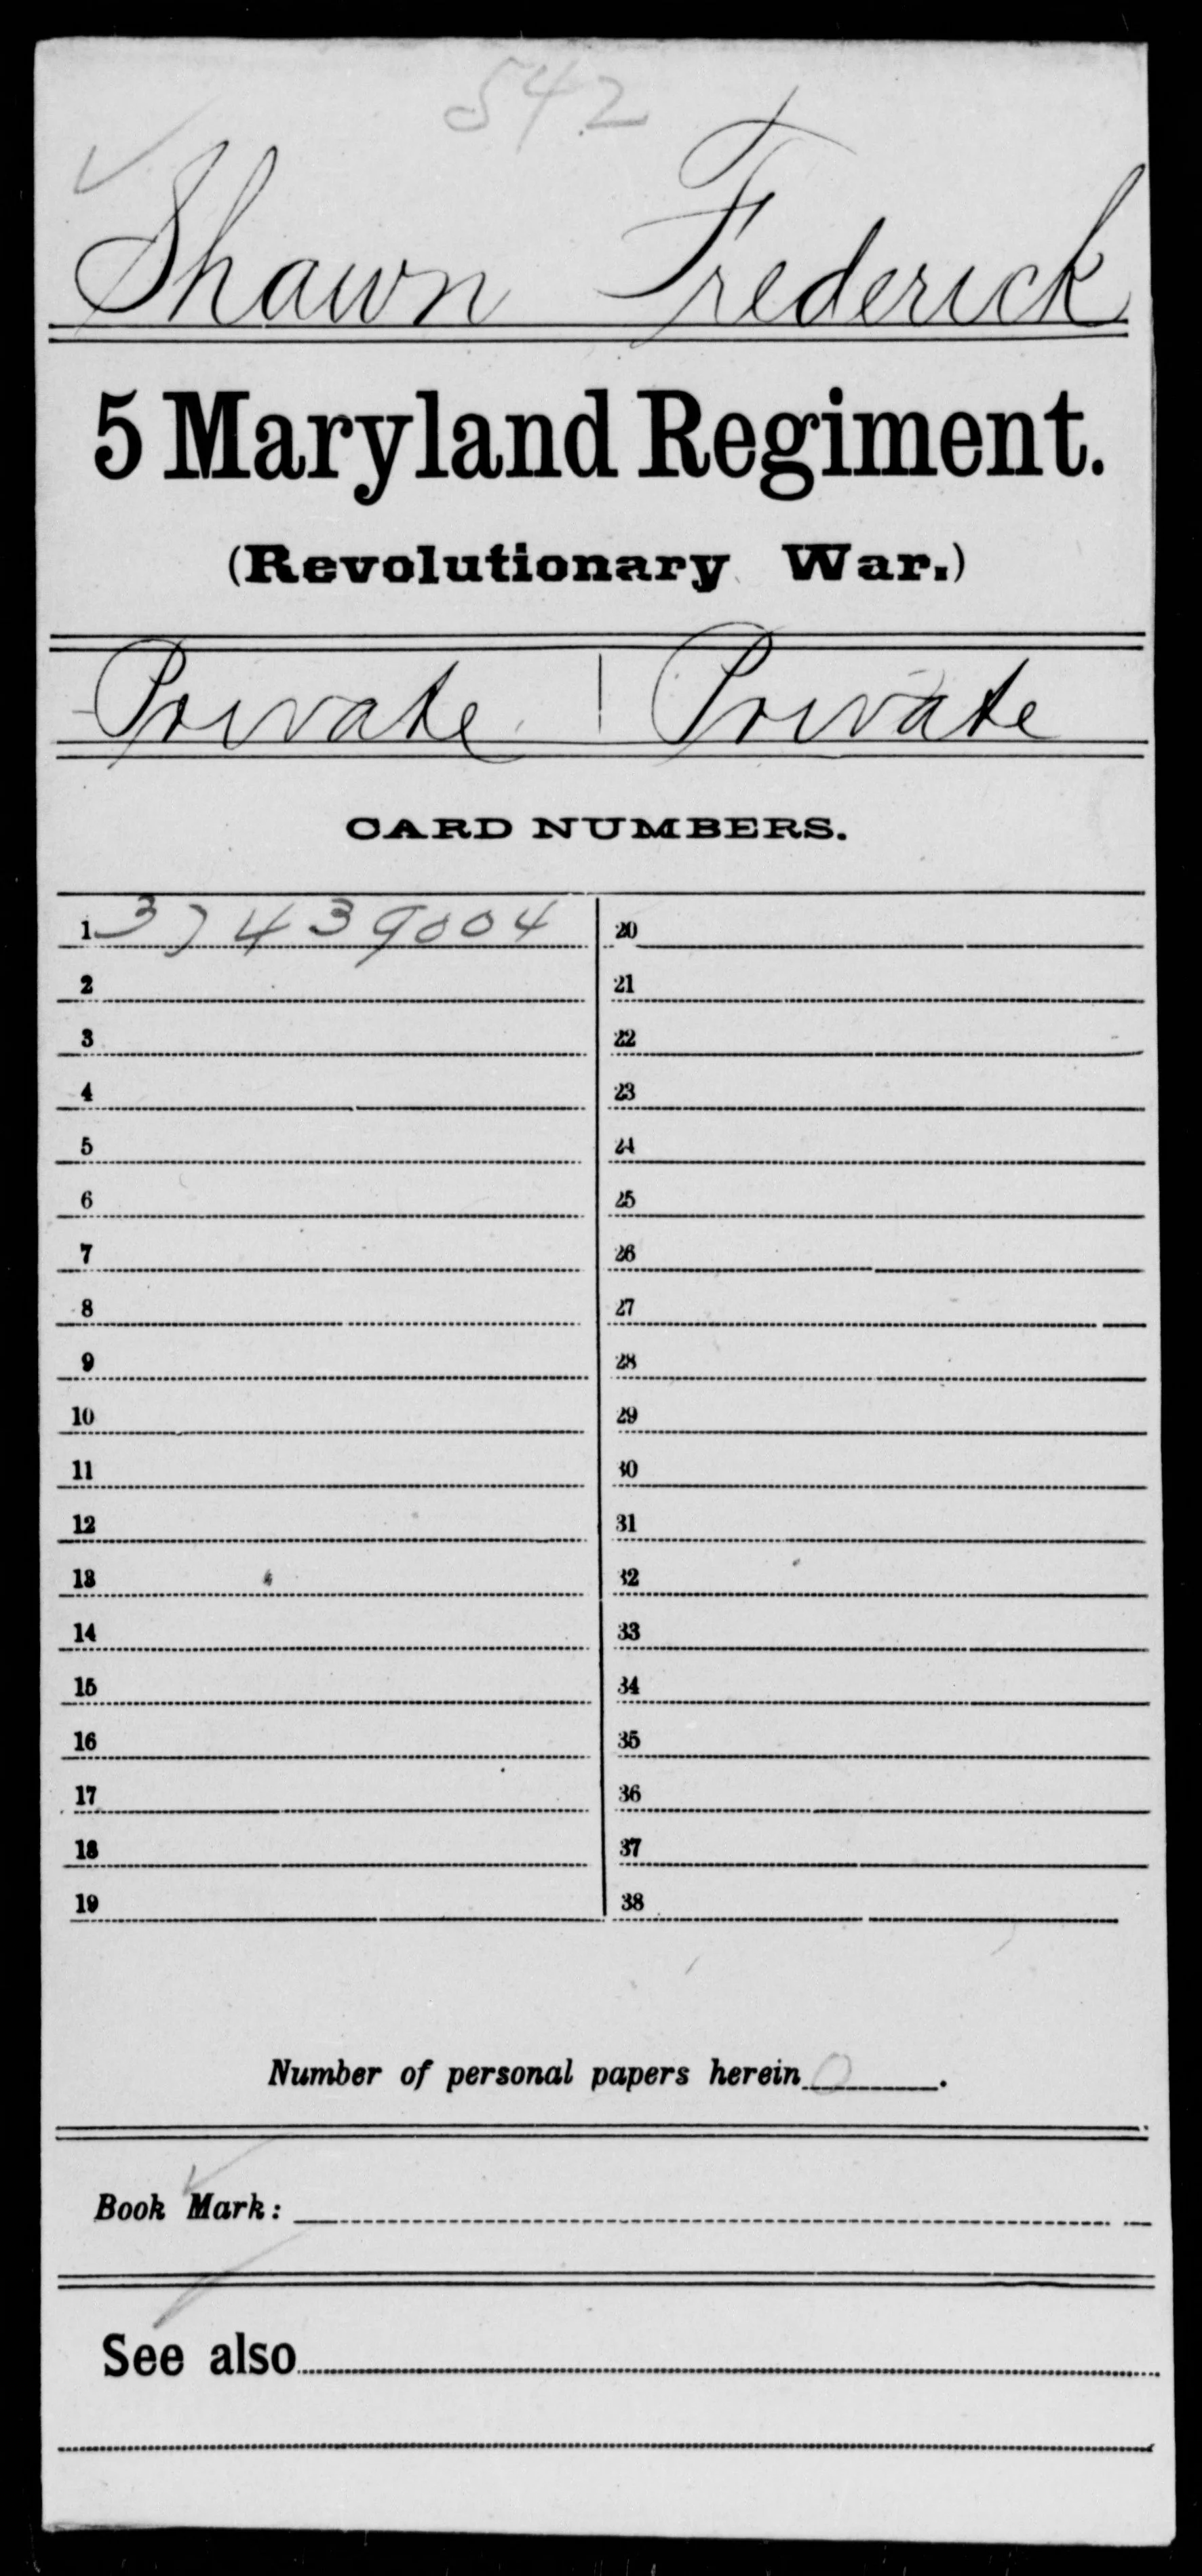 542
Shawn Frederick
5 Maryland Regiment.
(Revolutionary War.)
Private | Private
CARD NUMBERS.
1 37439004
20
2
21
3
22
4
23
5
24
6
25
7
26
8
27
9
28
10
29
11
30
12
31
13
32
14
33
15
34
16
35
17
36
18
37
19
38
Number of personal papers herein 0.
Book Mark:
See also